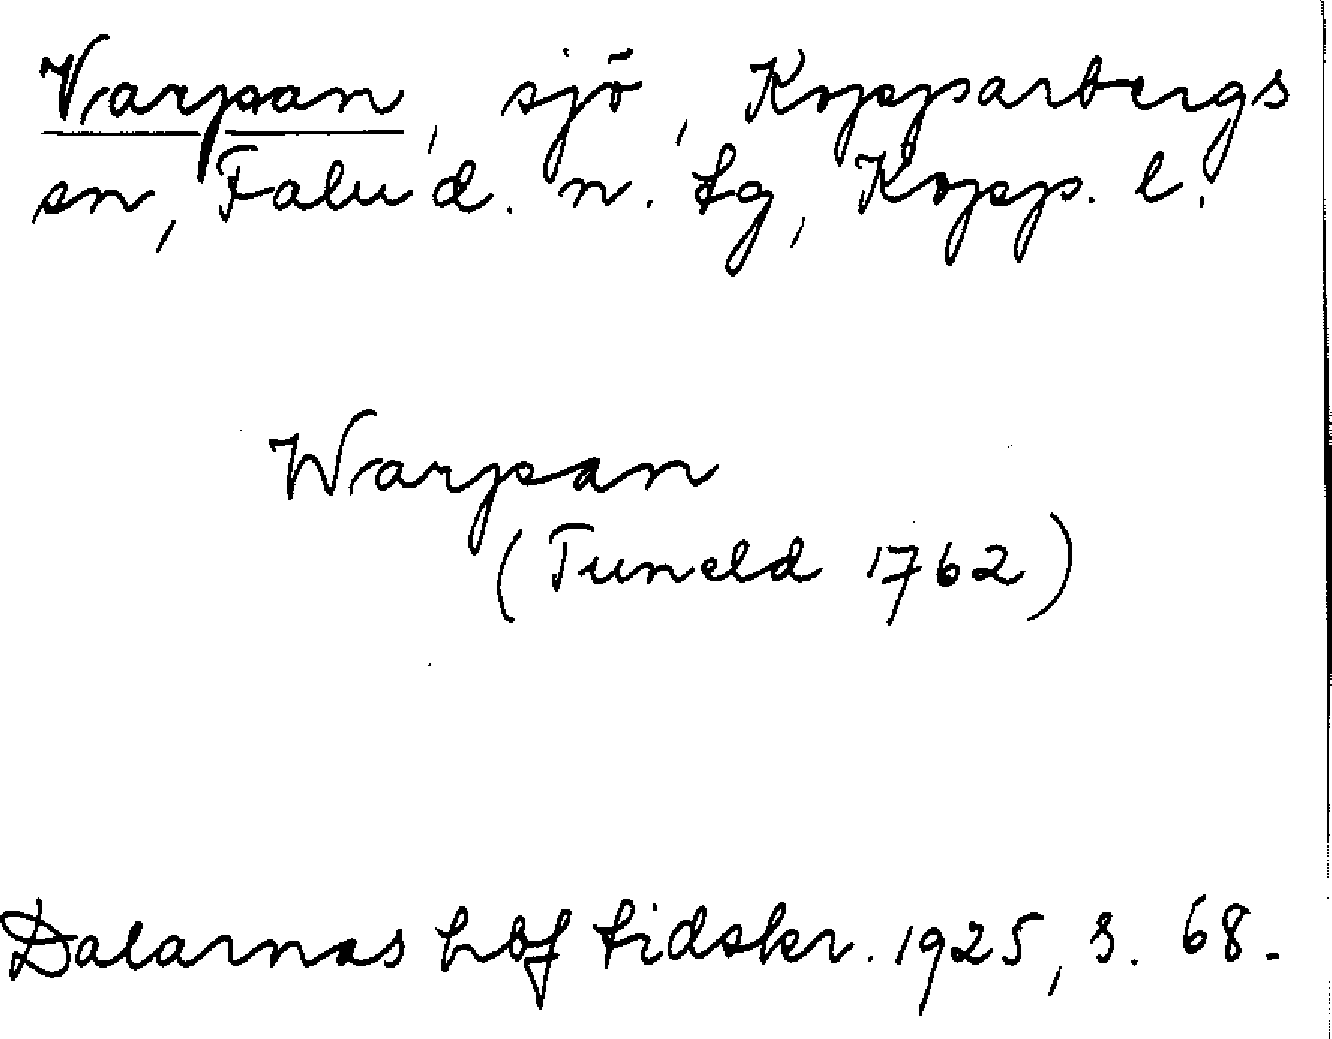 Varpan, sjö, Kopparbergs
sn, Falu d. n. tg, Kopp. l.
Warpan
(Tuneld 1762)
Dalarnas hbf tidskr. 1925, s. 68.